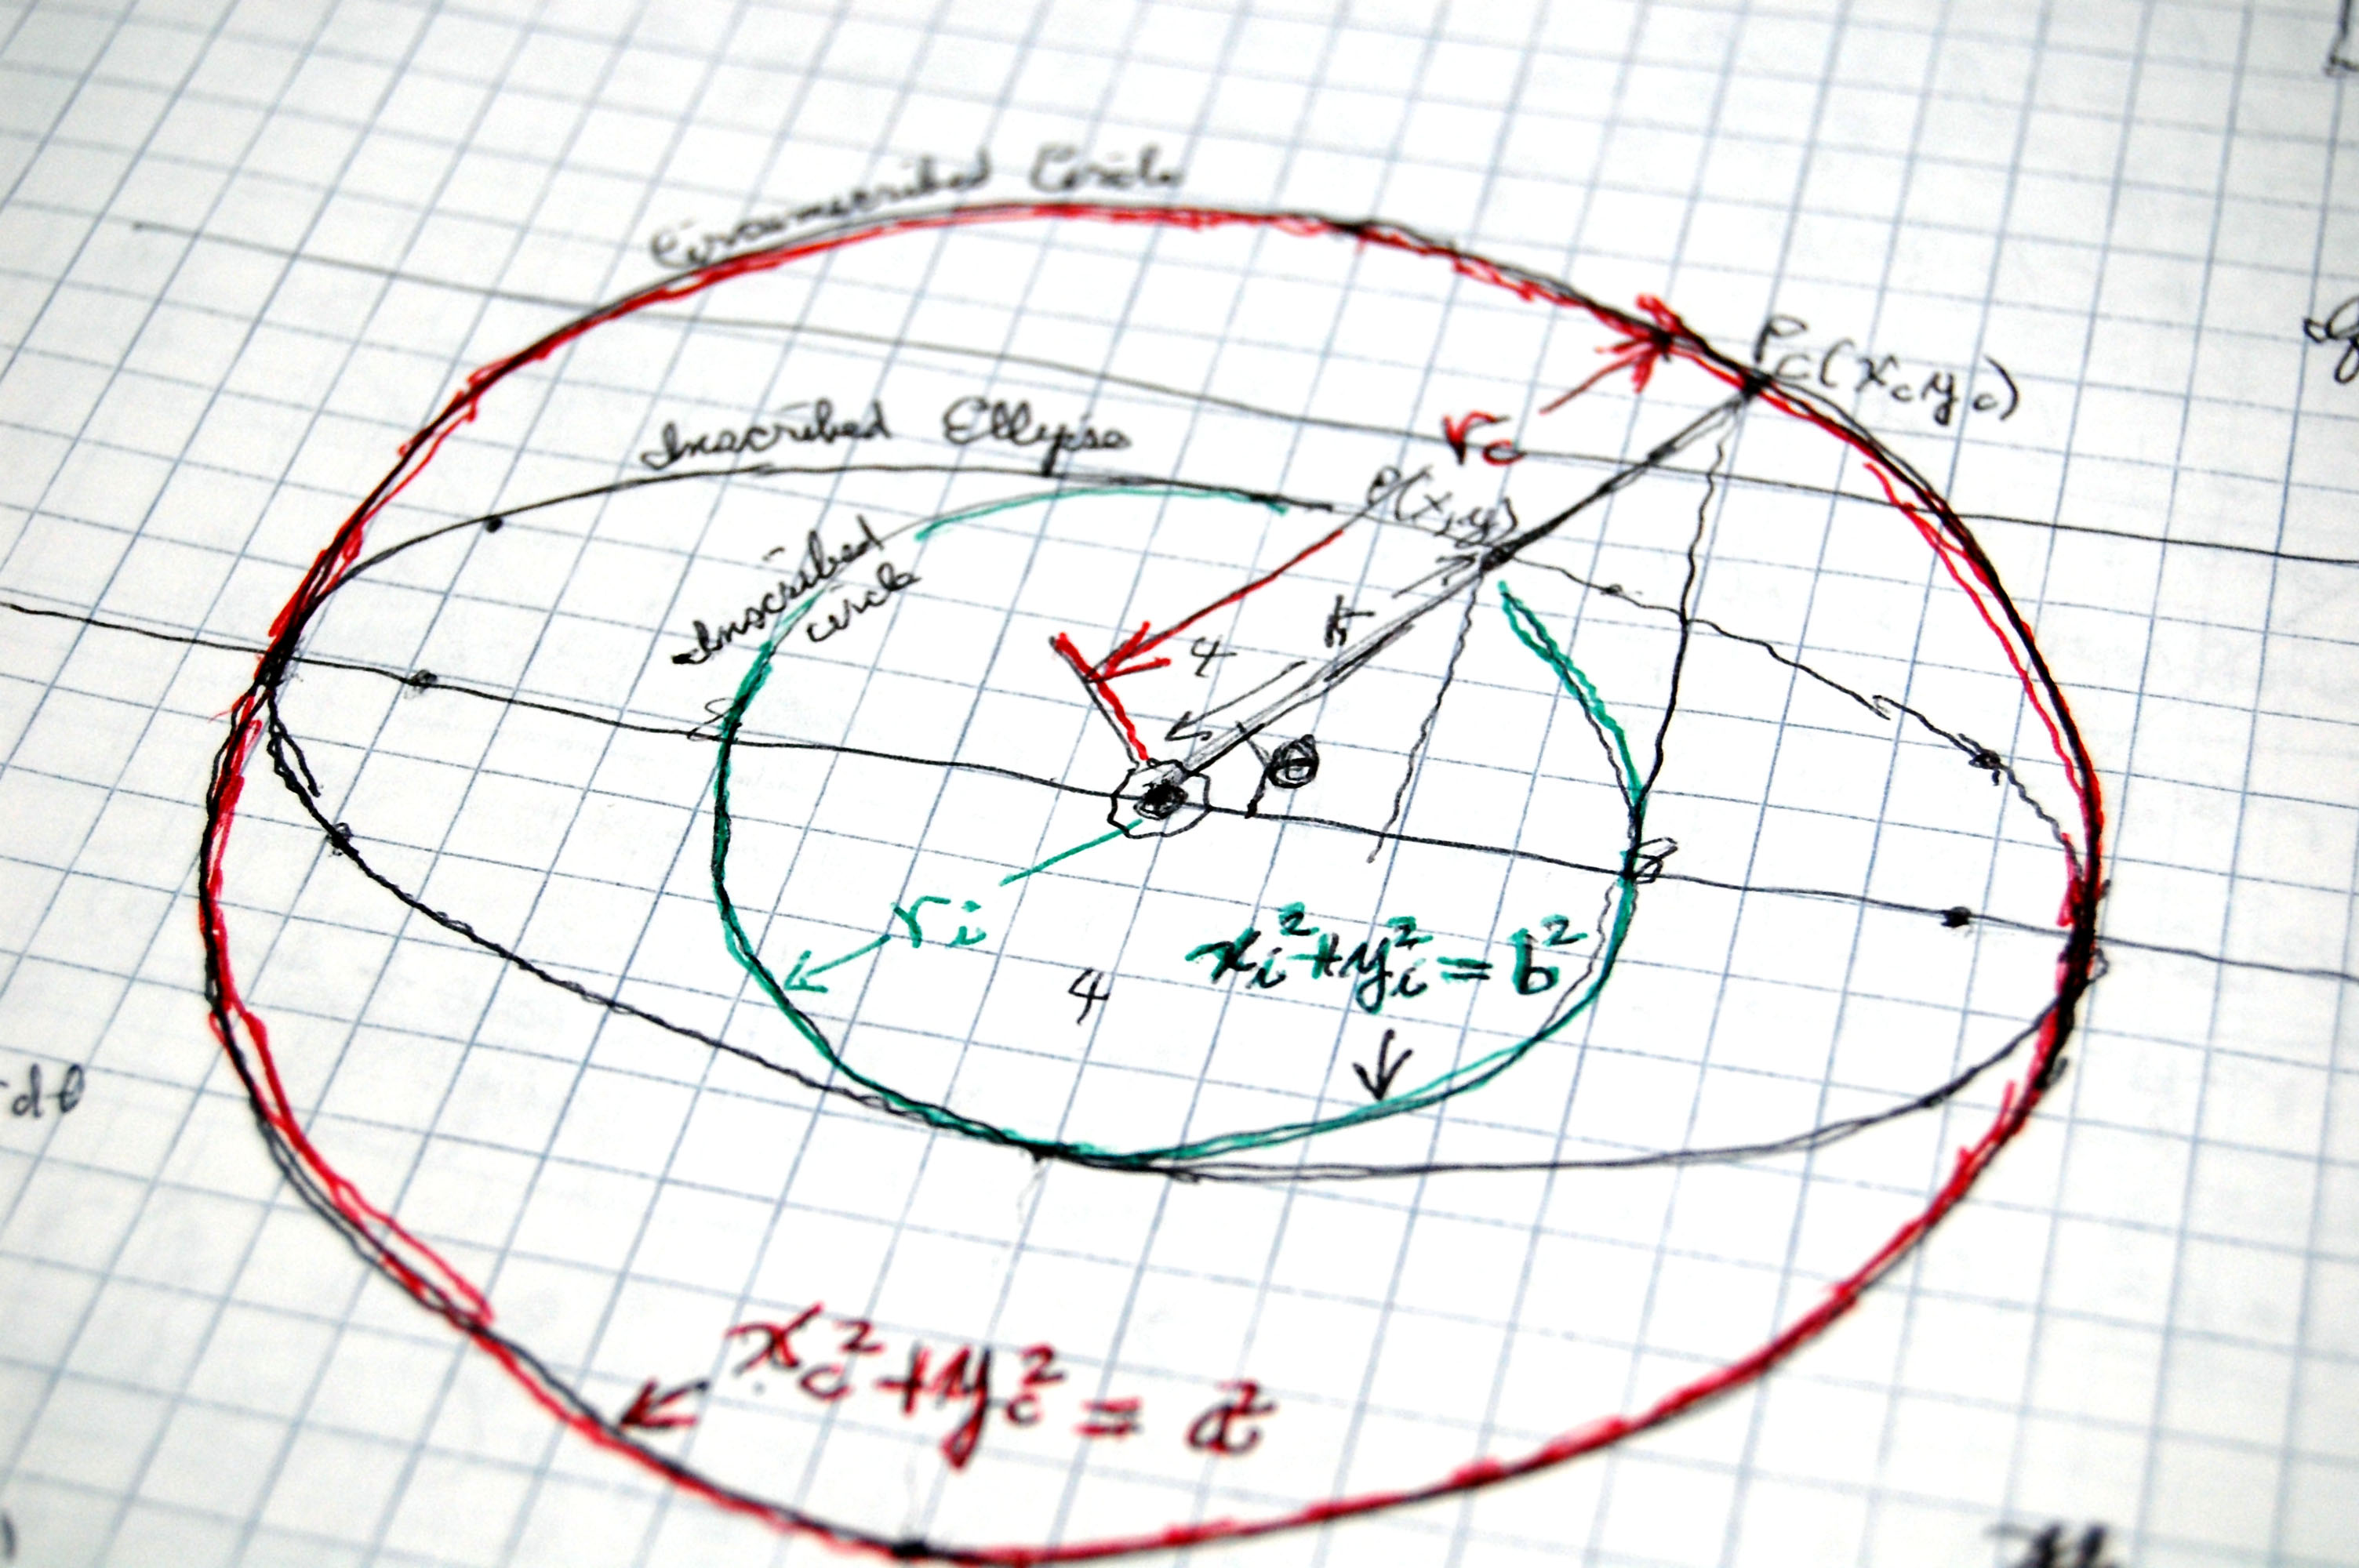 Circumscribed Circle
P
c(x_c y_c)
Inscribed Ellipse
r_c
P(x,y)
Inscribed
circle
r
4
θ
r_i
x_i² + y_i² = b²
4
dθ
x_c² + y_c² = a²